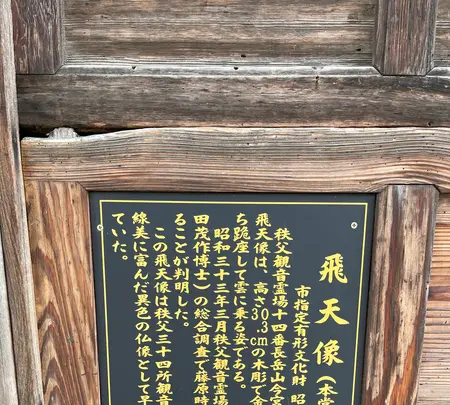 飛天像(本堂
市指定有形文化財 昭
秩父観音霊場十四番長岳山今宮
飛天像は、高さ30.3cmの木彫で金
ち跪座して雲に乗る姿である。
昭和三十三年三月秩父観音霊場
田茂作博士)の総合調査で藤原時
ることが判明した。
この飛天像は秩父三十四所観音
線美に富んだ異色の仏像として早
ていた。